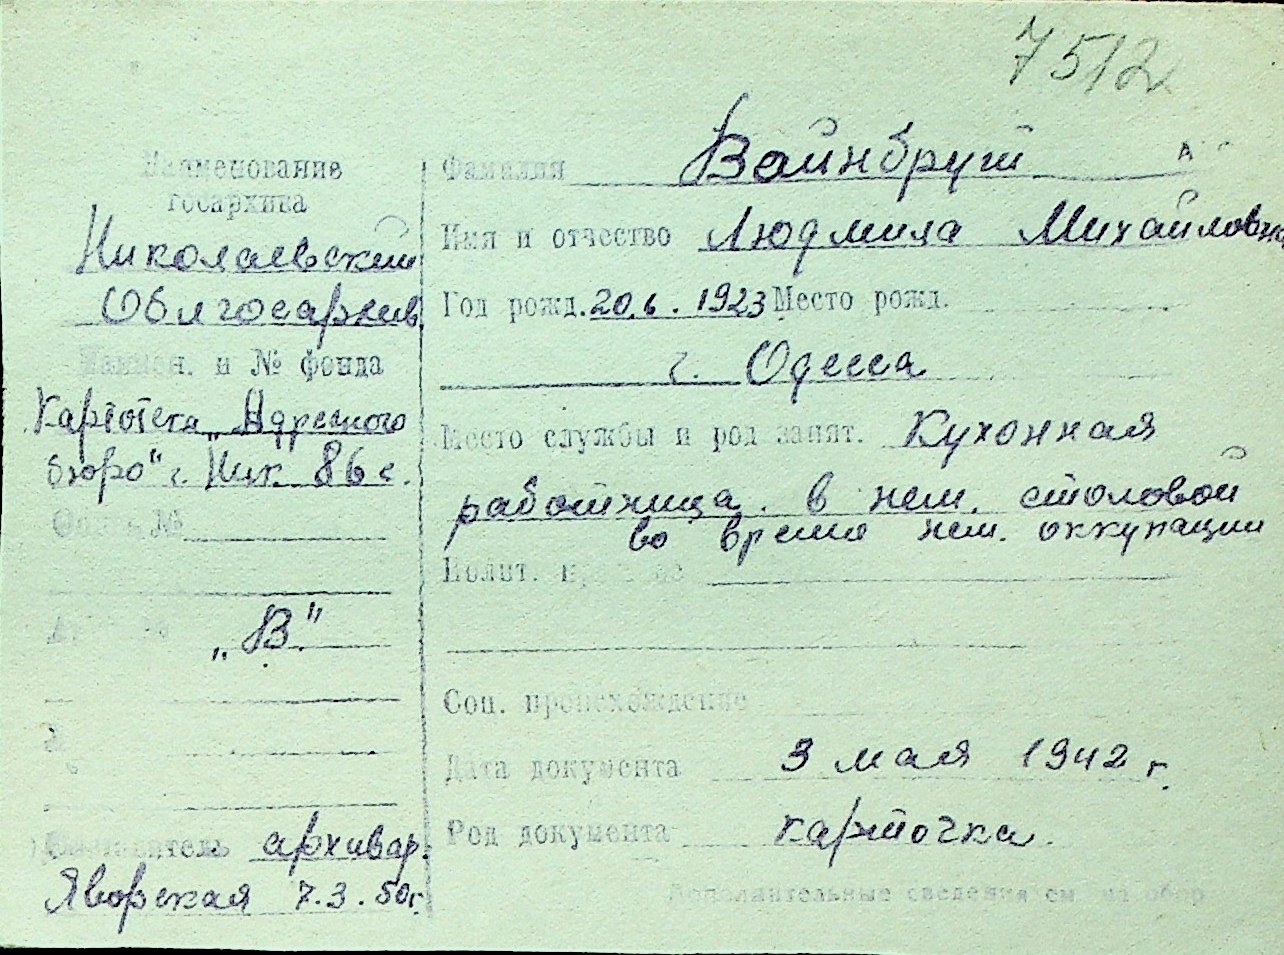 7512
Наименование
госархива
Николаевский
Облгосархив
Наимен. и № фонда
Картотека „Адресного
бюро" г. Ник. 86 с.
Опись №
„В"
Составитель архивар.
Яворская 7.3.50г.
Фамилия Вайнбруш
Имя и отчество Людмила Михайловна
Год рожд. 20.6.1923 Место рожд.
г. Одесса
Место службы и род занят. Кухонная
работница в нем. столовой
во время нем. оккупации
Полит.
Соц. происхождение
Дата документа 3 мая 1942 г.
Род документа карточка.
Дополнительные сведения см на обор